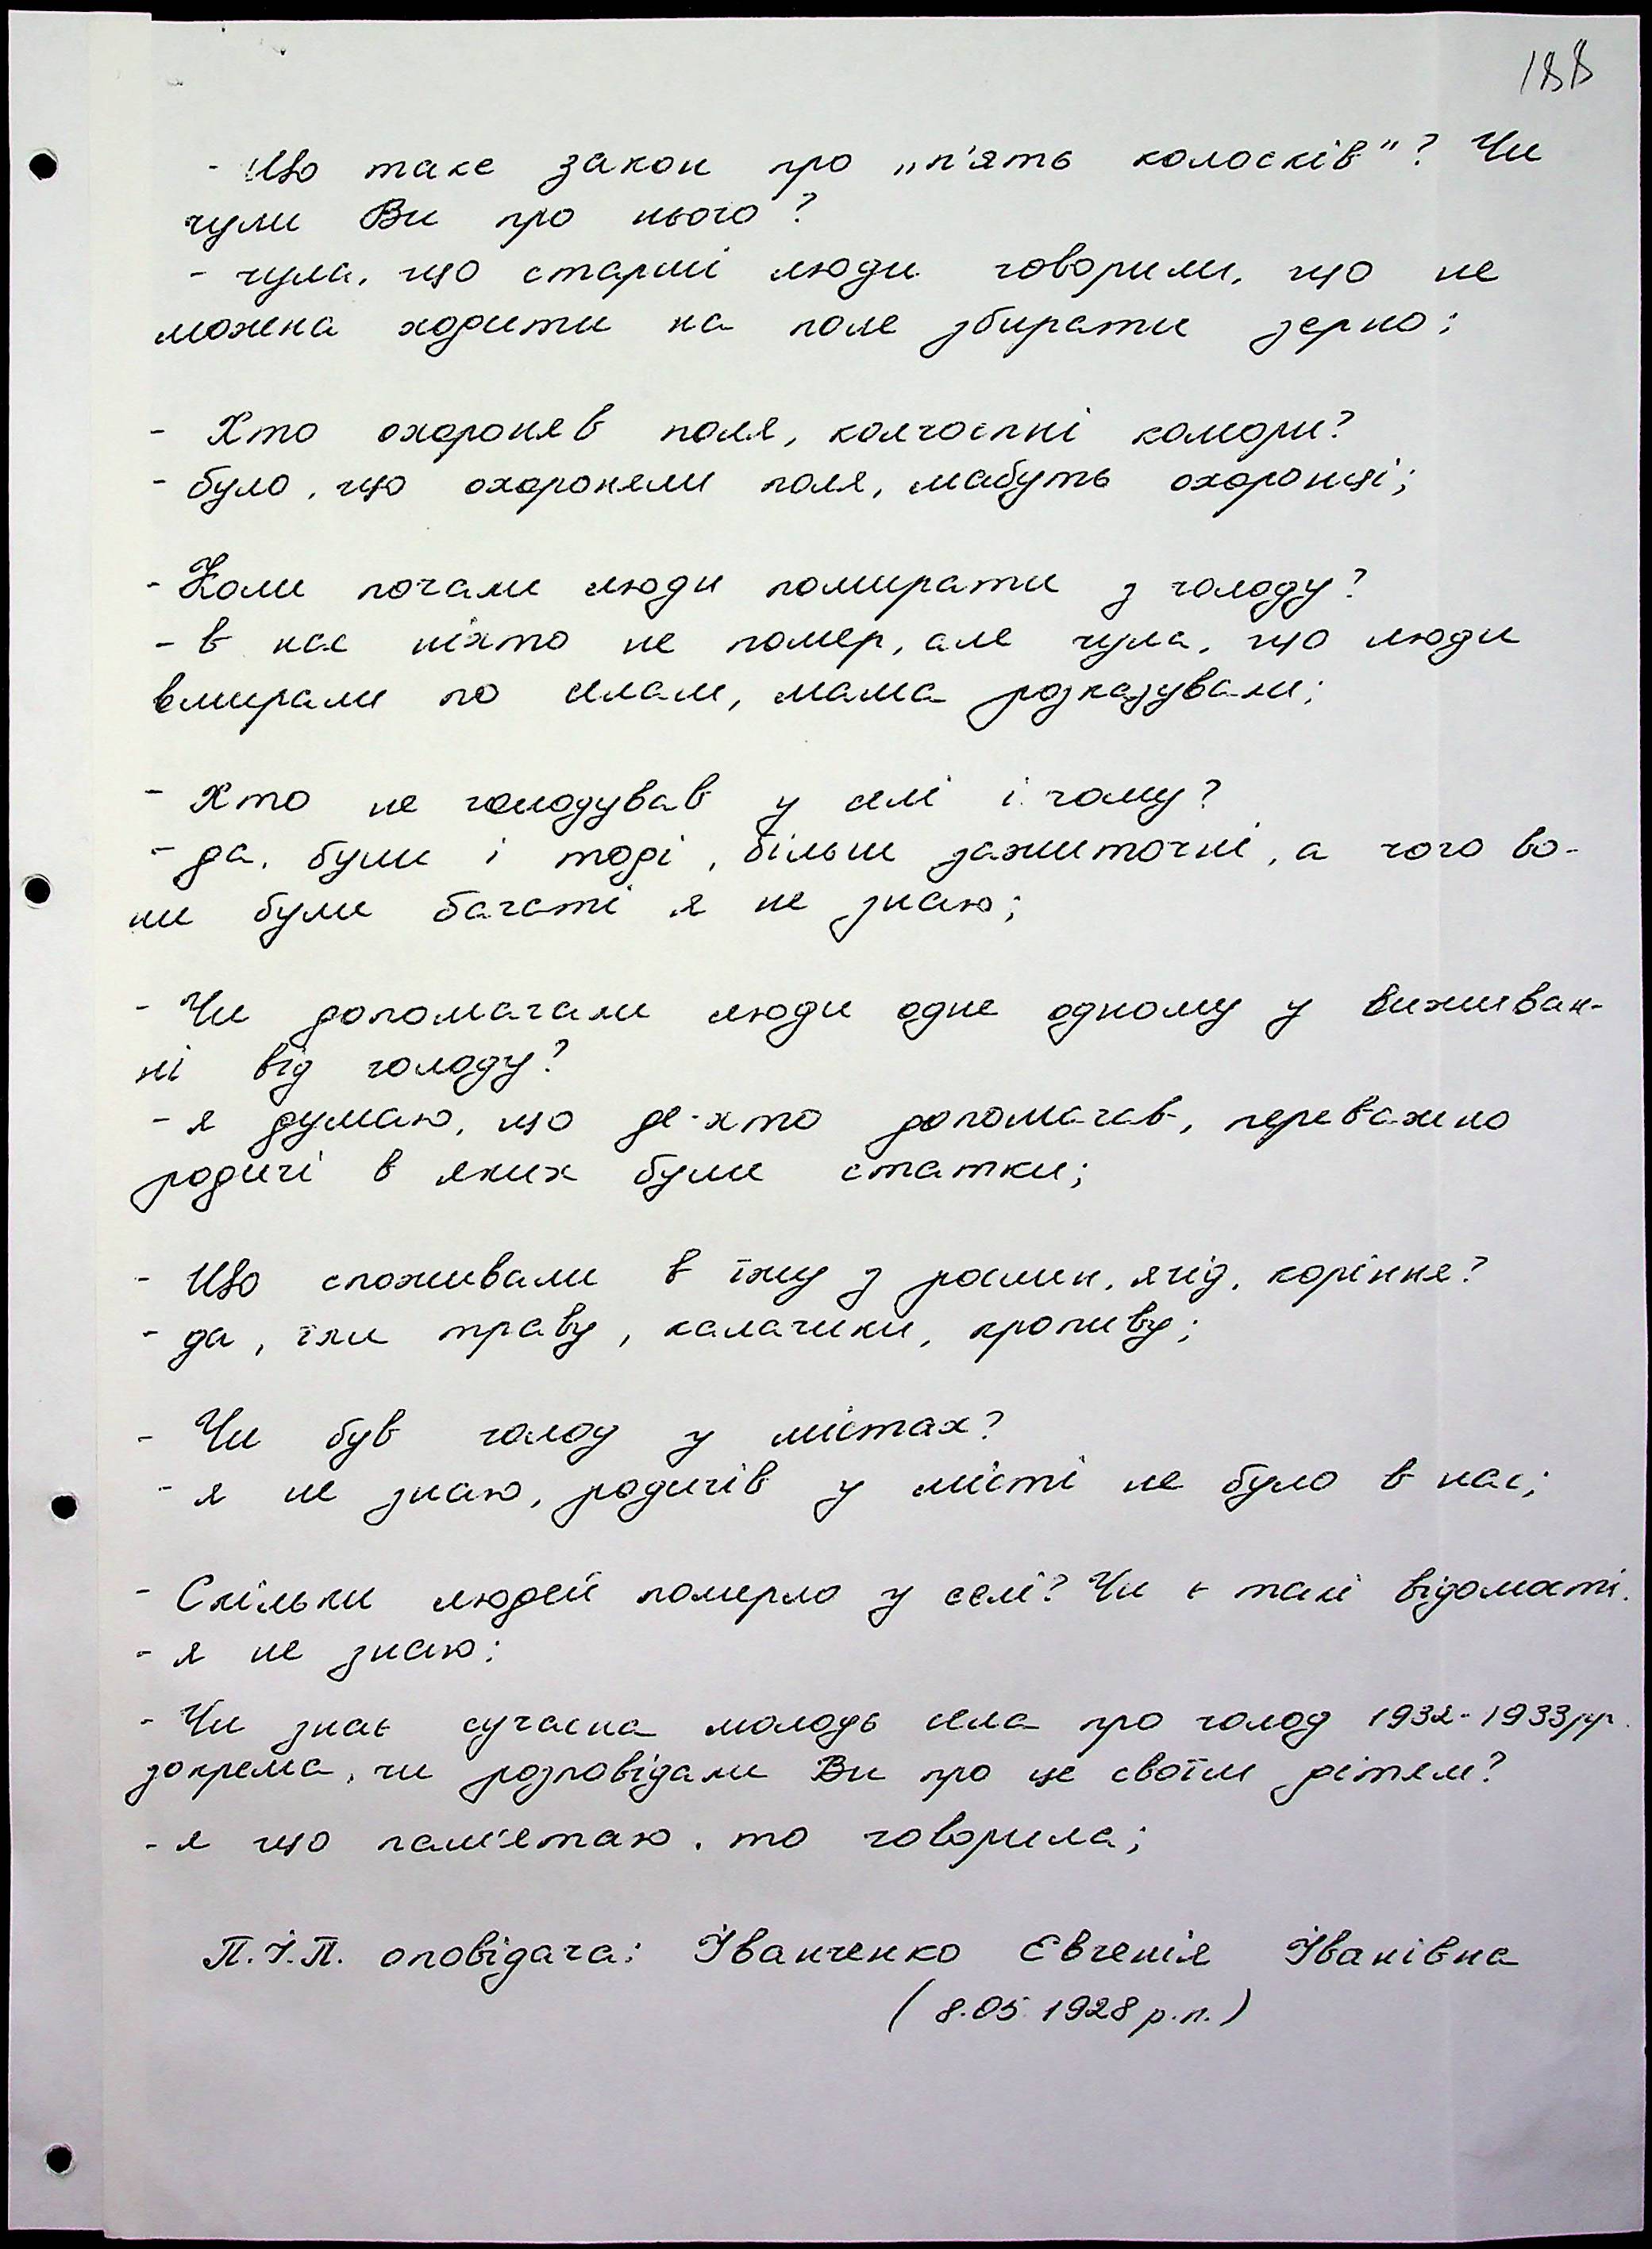 188
- Що таке закон про „п'ять колосків"? Чи
чули Ви про нього?
- чула, що старші люди говорили, що не
можна ходити на поле збирати зерно;
- Хто охороняв поля, колгоспні комори?
- було, що охороняли поля, мабуть охоронці;
- Коли почали люди помирати з голоду?
- в нас ніхто не помер, але чула, що люди
вмирали по селам, мама розказували;
- Хто не голодував у селі і чому?
- да, були і тоді, більш зажиточні, а чого во-
ни були багаті я не знаю;
- Чи допомагали люди одне одному у виживан-
ні від голоду?
- я думаю, що де-хто допомагав, переважно
родичі в яких були статки;
- Що споживали в їжу з рослин, ягід, коріння?
- да, їли траву, калачики, кропиву;
- Чи був голод у містах?
- я не знаю, родичів у місті не було в нас;
- Скільки людей померло у селі? Чи є такі відомості.
- я не знаю;
- Чи знає сучасна молодь села про голод 1932-1933рр.
зокрема, чи розповідали Ви про це своїм дітям?
- я що пам'ятаю, то говорила;
П.І.П. оповідача: Іванченко Євгенія Іванівна
(8.05.1928 р.н.)